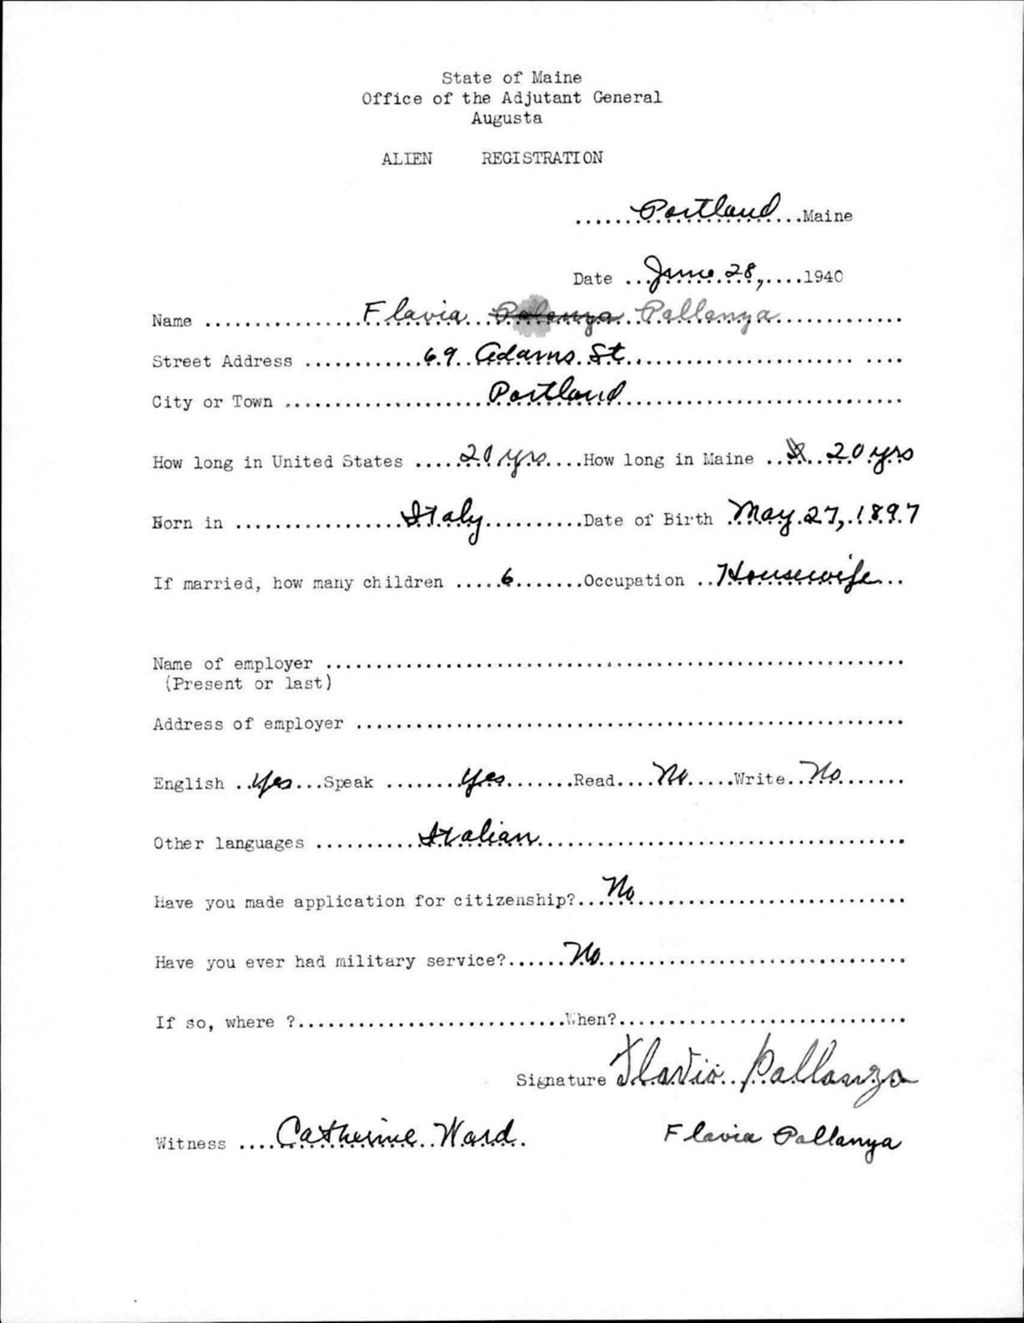 State of Maine
Office of the Adjutant General
Augusta
ALIEN REGISTRATION
Portland Maine
Date June 28, 1940
Name Flavia Palanza Pallanza
Street Address 69 Adams St
City or Town Portland
How long in United States 20 yrs How long in Maine 20 yrs
Born in Italy Date of Birth May 27, 1897
If married, how many children 6 Occupation Housewife
Name of employer
(Present or last)
Address of employer
English Yes Speak Yes Read No Write No
Other languages Italian
Have you made application for citizenship? No
Have you ever had military service? No
If so, where ? When?
Signature Flavia Pallanza
Witness Catherine Ward. Flavia Pallanza